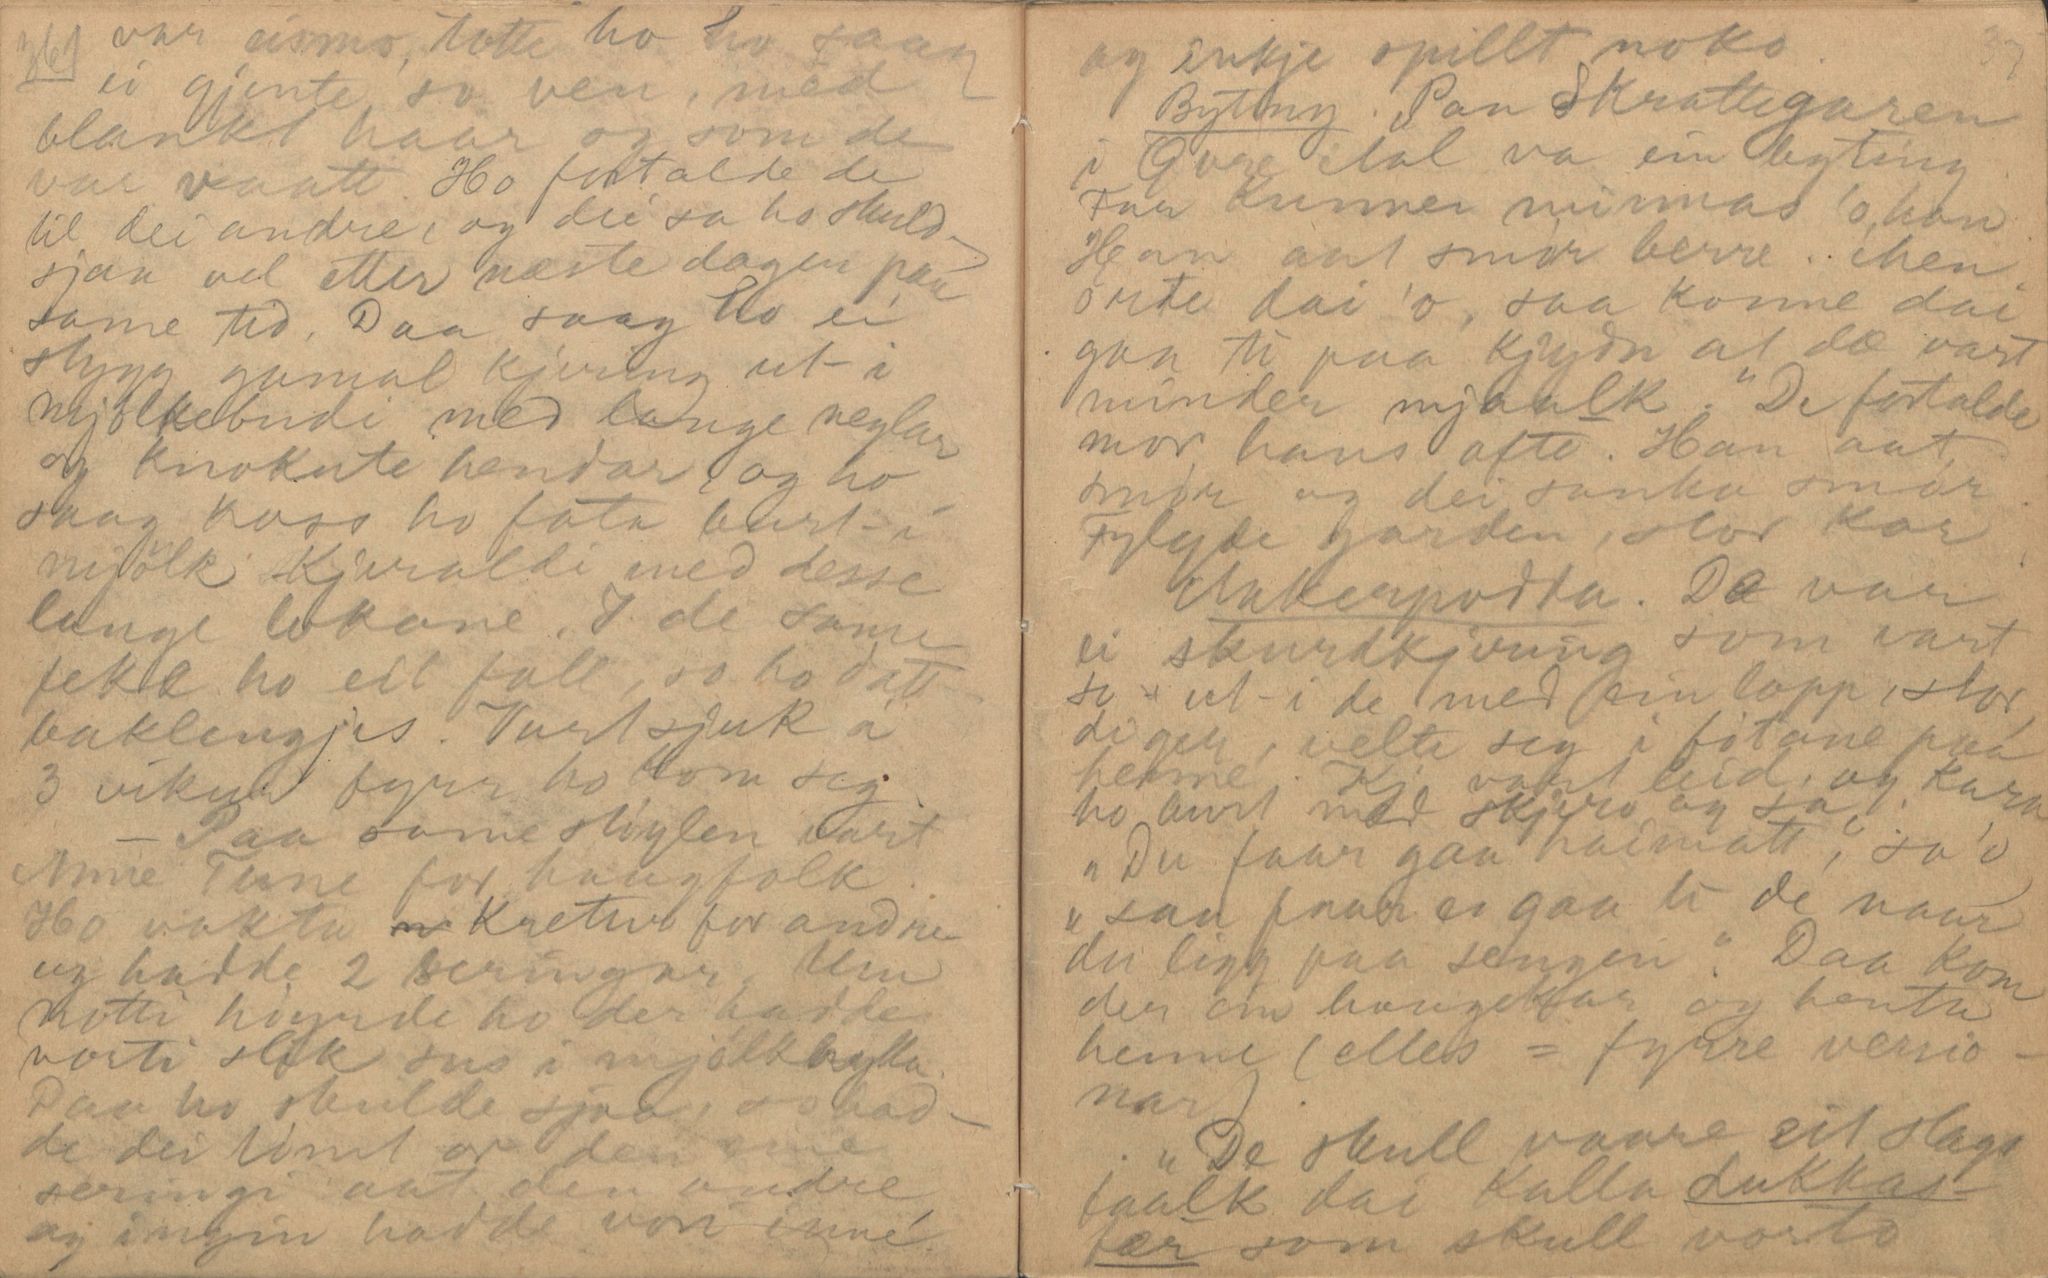 36)
var eismo, totte ho ho saag
ei gjente, so ven, med
blankt haar og som de
var vaatt. Ho fortalde de
til dei andre, og dei sa ho skuld-
sjaa vel etter næste dagen paa
same tid. Daa saag ho ei
stygg gamal kjering ut-i
mjølkebudi med lange neglar
og knokute hendar, og ho
saag koss ho fata burt-i
mjölk kjeraldi med desse
lange lokane. I de same
fekk ho eit fall, so ho datt
baklengjes. Vart sjuk a
3 vikur fyrr ho kom seg.
— Paa same stöylen vart
Anne Tune for haugfolk.
Ho vakta kretur for andre
og hadde 2 seringar. Um
notti höyrde ho der hadde
vorti slik sus i mjölkhylla.
Daa ho skulde sjaa, so had-
de dei tömt or den eine
seringi aat den andre
og ingin hadde vori inne
37
og inkje spillt noko.
Byting. "Paa Skrattegaren
i Øvre Aal va ein byting
Far kunner minnas 'o, han
Han aat smör berre. Men
örte dai 'o, saa konne dai
gaa ti paa kjydn at dæ vart
minder mjaalk." De fortalde
mor hans ofte. Han aat
smör og dei sanka smör.
Fylgde garden, stor kar.
Aakerpodda. De var
ei skurdkjering som vart
so ut-i de med ein lopp, stor,
diger, velte seg i fótane paa
henne. Kj. vart leid, og kara
ho burt med skjero og sa:
"Du faar gaa haimatt", sa 'o
"saa faar eg gaa ti de naar
du ligg paa sengen". Daa kom
der ein haugekar og henta
henne (elles = fyrre versio-
nar).
"De skull vaare eit slags
faalk dai kalla Lukkas-
fær som skull vorto